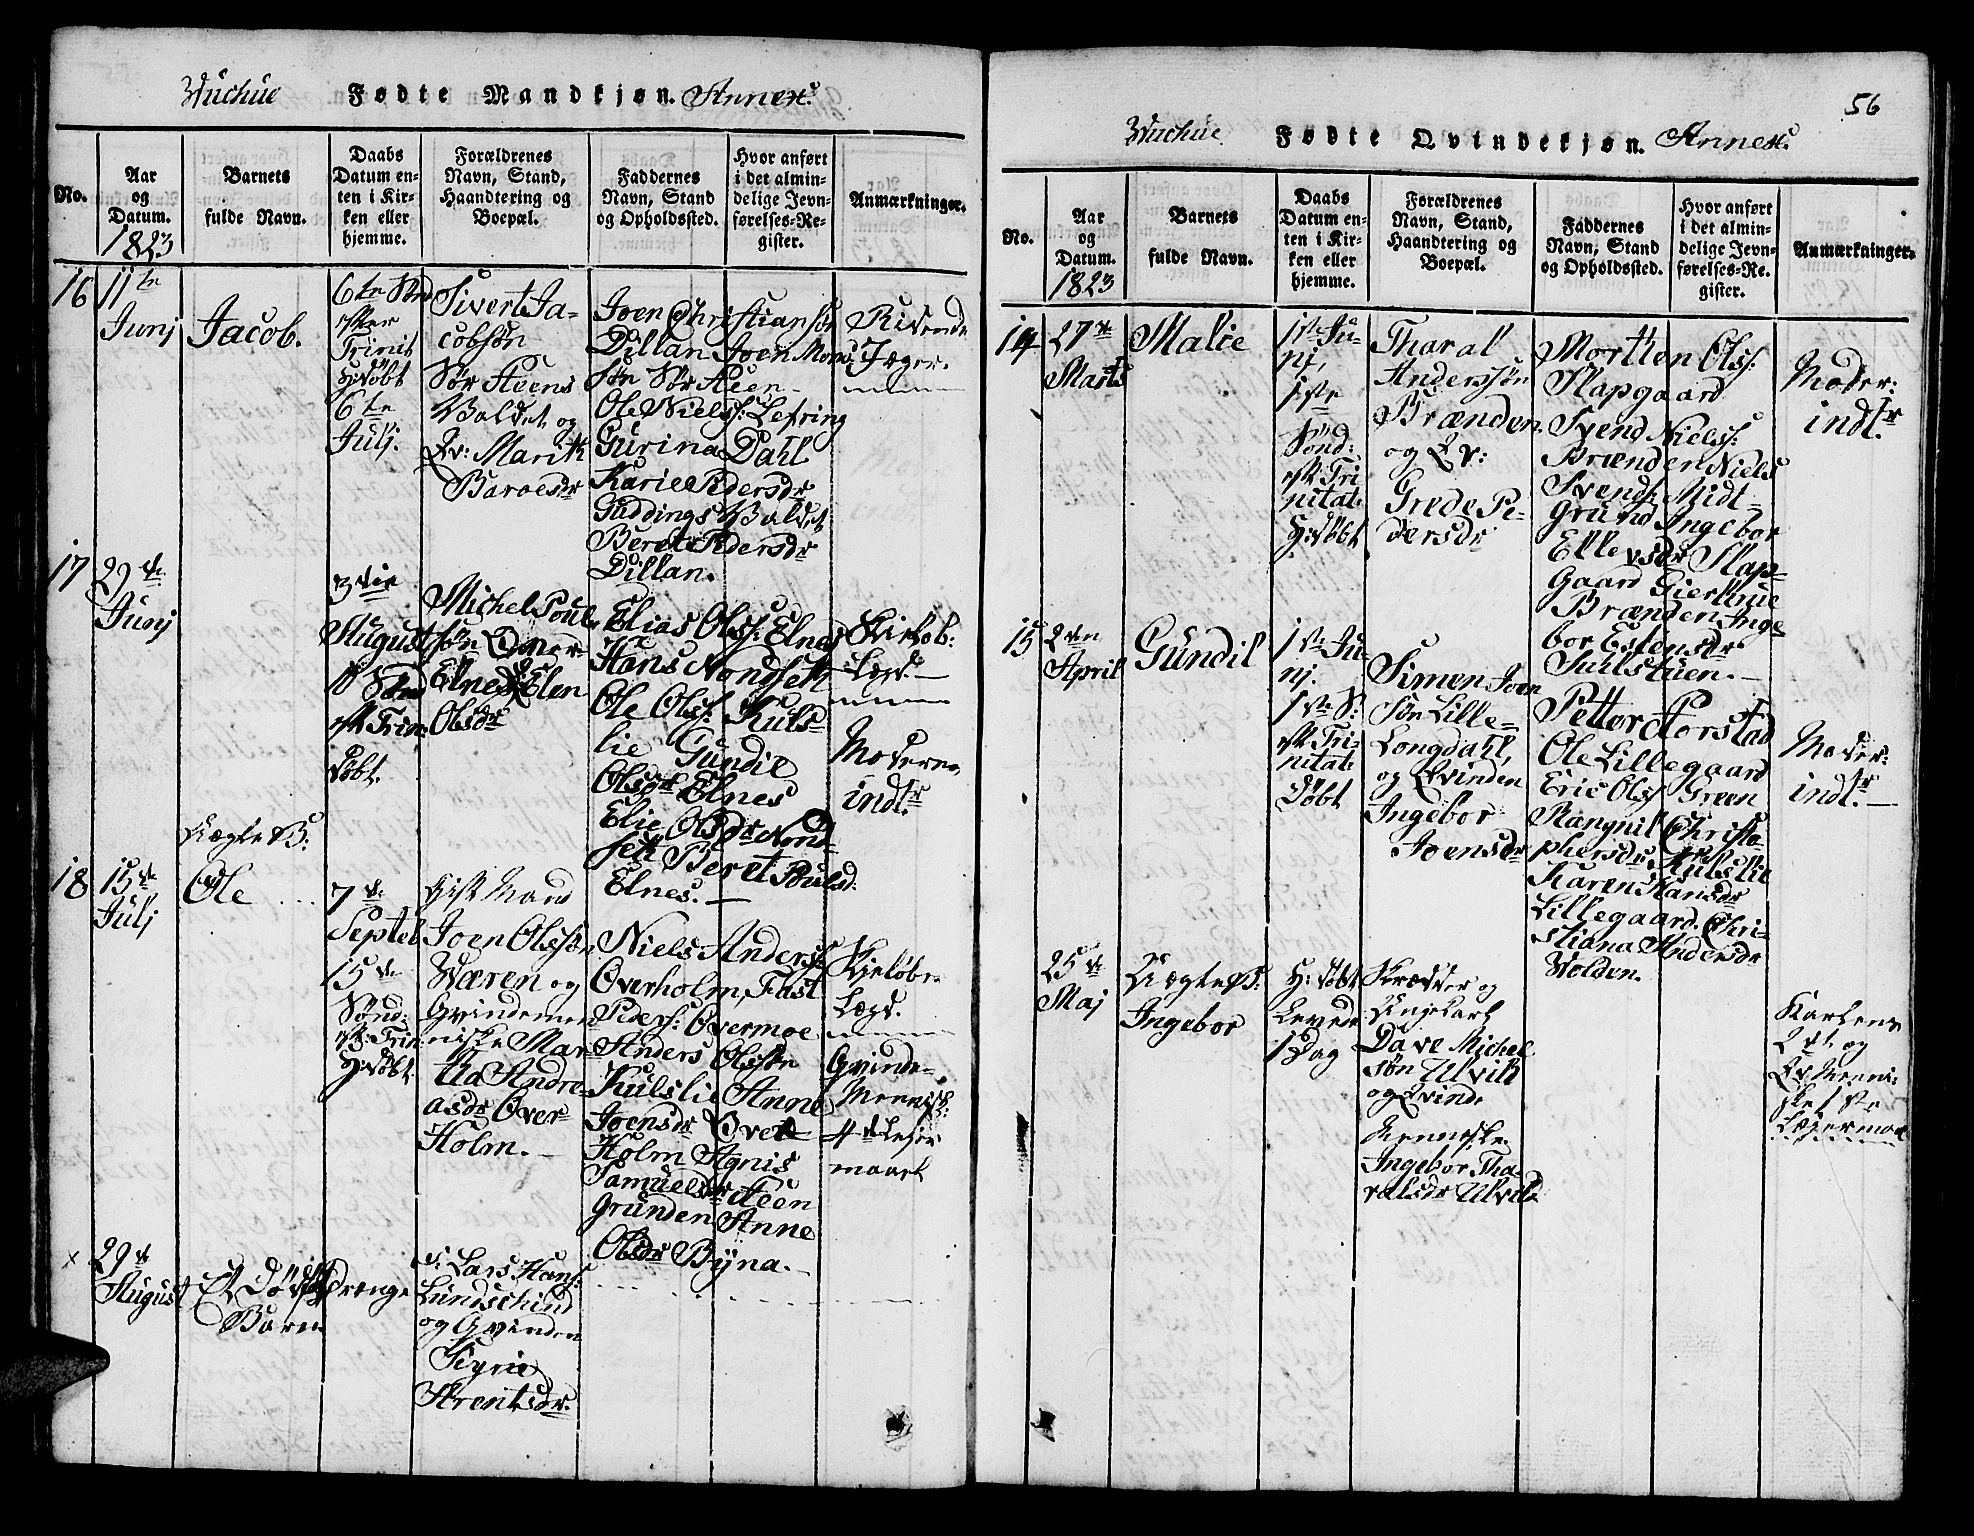 Vuchue Fødte Mandkjøn. Annex.
No.
Aar
og
Datum.
1823
Barnets
fulde Navn.
Daabs
Datum en-
ten i Kir-
ken eller
hjemme.
Forældrenes
Navn, Stand,
Haandtering og
Boepæl.
Faddernes
Navn, Stand
og Opholdssted.
Hvor anført
i det almin-
delige Jevn-
førelses-Re-
gister.
Anmærkninger.
16
11te
Junj
Jacob.
6te Sønd
efter
Trinit
H: døbt
6te
Julj.
Sivert Ja-
cobsøn
Sør Aeens
Valdet og
Qv: Marit
Baroesdr
Joen Christiansøn
Dillan Joen Mons
søn Sør Aeen
Ole Niels: Lefring
Gurina Dahl
Karie Pedersdr
Guddings Valdet
Beret Pedersdr
Dillan.
Ridende
Jæger.
17
29de
Junj
3die
August
10 Sønd
eft Trin:
døbt.
Michel Poul
søn
Elnes Elen
Olsdr
Elias Olss: Elnes
Hans Nondseth
Ole Olss: Kuls
lie Gundil
Olsdr Elnes
Elie Olsdr Nond
seth Beret Poulsd:
Elnes.
Moderen
indtr
18
15de
Julj
Uægte B:
Ole
7de
Septeb
15de
Sønd:
eft: Trin
H: døbt
Gift Mand
Joen Olssøn
Væren og
Qvindemen
niske Mar
tha Andre-
asdr Over
Holm.
Niels Anderss:
Overholm, Fast
Peders: Overmoe
Anders Olssøn
Kulslie Anne
Joensdr Over
Holm Agnis
Samuelsdr Aeen
Grunden Anne
Olsdr Byna.
Qvinde-
Mennisk:
4de Leier
maael
x
29de
August
Et Dødf. Drenge
Barn
S: Lars Hans:
Lundschind
og Qvinden
Sigrie
Arentsdr.
56
Vuchue Fødte Qvindekjøn. Annex.
No.
Aar
og
Datum.
1823
Barnets
fulde Navn.
Daabs
Datum en-
ten i Kir-
ken eller
hjemme.
Forældrenes
Navn, Stand,
Haandtering og
Boepæl.
Faddernes
Navn, Stand
og Opholdssted.
Hvor anført
i det almin-
delige Jevn-
førelses-Re-
gister.
Anmærkninger.
14
27de
Marts
Malie
1ste Ju-
nj,
1ste
Sønd:
eft: Tri
nitat:
H: døbt
Tharal
Anderssøn
Brænden
og Qv:
Grede Pe-
dersdr
Morthen Olss:
Slapgaard
Svend Nielss:
Brænden Niels
Svends: Midt-
Grund Ingebor
Ellevsdr Slap-
Gaard Giertrue
Brænden Inge
bor Estensdr
Julstuen.
Moder:
indtr
15
2den
April
Gundil
1ste Ju
nj.
1ste S:
eft: Tri-
nitat:
Døbt
Simen Joen
Søn Lille-
Longdahl,
og Qvinden
Ingebor
Joensdr
Petter Aorstad
Ole Lillegaard
Eric Olss Green
Rangnil Christo-
phersdr Kulslie
Karen Hansdr
Lillegaard. Chri-
stiana Andersdr
Volden.
Moder:
indtr
25de
Maj
Uægte B:
Ingebor
H: døbt
Levede
1 Dag
Skrædder og
Ungekarl
Dave Michel
søn Ulvik
og Qvinde
Menneske
Ingebor Tha-
ralsdr Ulvik
Karlens
2det og
Qv.Menni-
ske 1ste
Leiermaal